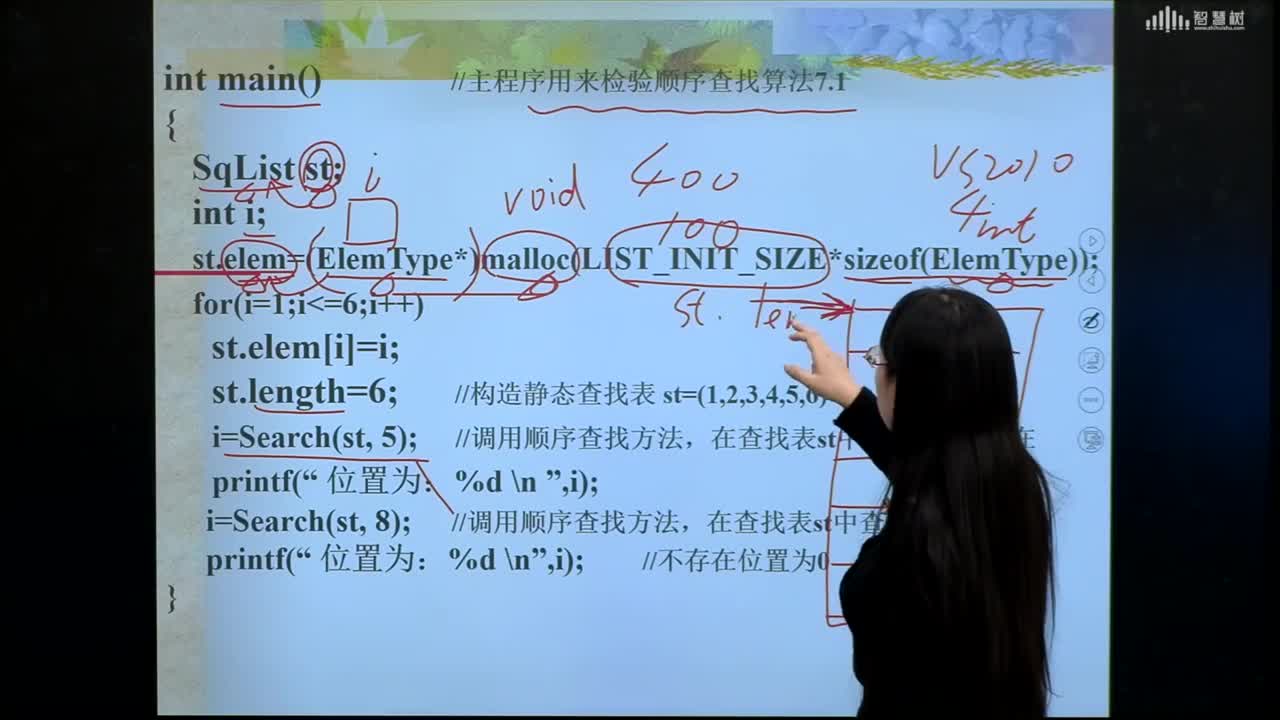 智慧树
www.zhihuishu.com
int main() //主程序用来检验顺序查找算法7.1
{
SqList st;
i
void
400
VS2010
int i;
100
4int
st.elem=(ElemType*)malloc(LIST_INIT_SIZE*sizeof(ElemType));
for(i=1;i<=6;i++)
st.
st.elem[i]=i;
st.length=6; //构造静态查找表 st=(1,2,3,4,5,6)
i=Search(st, 5); //调用顺序查找方法，在查找表st中 在
printf(“ 位置为：%d \n ”,i);
i=Search(st, 8); //调用顺序查找方法，在查找表st中查
printf(“ 位置为：%d \n”,i); //不存在位置为0
}